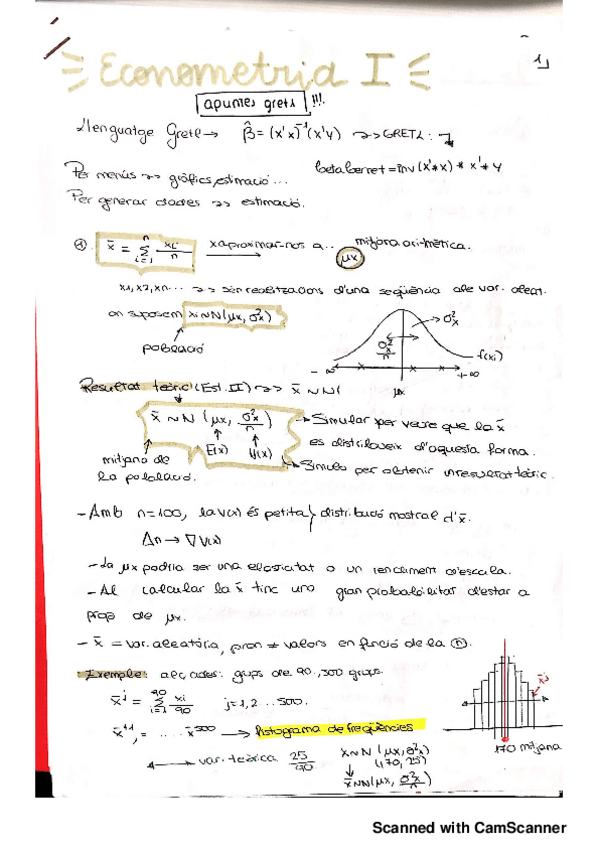 1
Econometria I
apuntes gretl !!!.
Llenguatge Gretl → β̂ = (x'x)⁻¹(x'y) ~> GRETL:
betabarret = inv(x'*x) * x'*y
Per menús ~> gràfics, estimació...
Per generar dades ~> estimació.
① x̄ = Σ(i=1..n) xi/n → x aproximar-nos a... mitjana aritmètica. μx
x1, x2, xn... ~> són realitzacions d'una seqüència de var. aleat.
on suposem xi ~ N(μx, σ²x)
població
σ²x
σ²x/n
f(xi)
-∞ μx +∞
Resultat teòric (Est. II) ~> x̄ ~ N(
x̄ ~ N(μx, σ²x/n) → Simular per veure que la x̄
es distribueix d'aquesta forma.
E(x) V(x)
mitjana de
la població.
→ Simulo per obtenir un resultat teòric.
- Amb n=100, la v(x) és petita} distribució mostral d'x̄.
Δn → ∇V(x)
- La μx podria ser una elasticitat o un rendiment d'escala.
- Al calcular la x̄ tinc una gran probabilitat d'estar a
prop de μx.
- x̄ = var. aleatòria, pren ≠ valors en funció de la n.
Exemple: alçades: grups de 90, 500 grups.
x̄ʲ = Σ(i=1..90) xi/90 j=1,2...500.
→ histograma de freqüències
x̄ʲ
170 mitjana
var. teòrica 25/90
x ~ N(μx, σ²x)
(170, 25)
x̄ ~ N(μx, σ²x/n)
Scanned with CamScanner